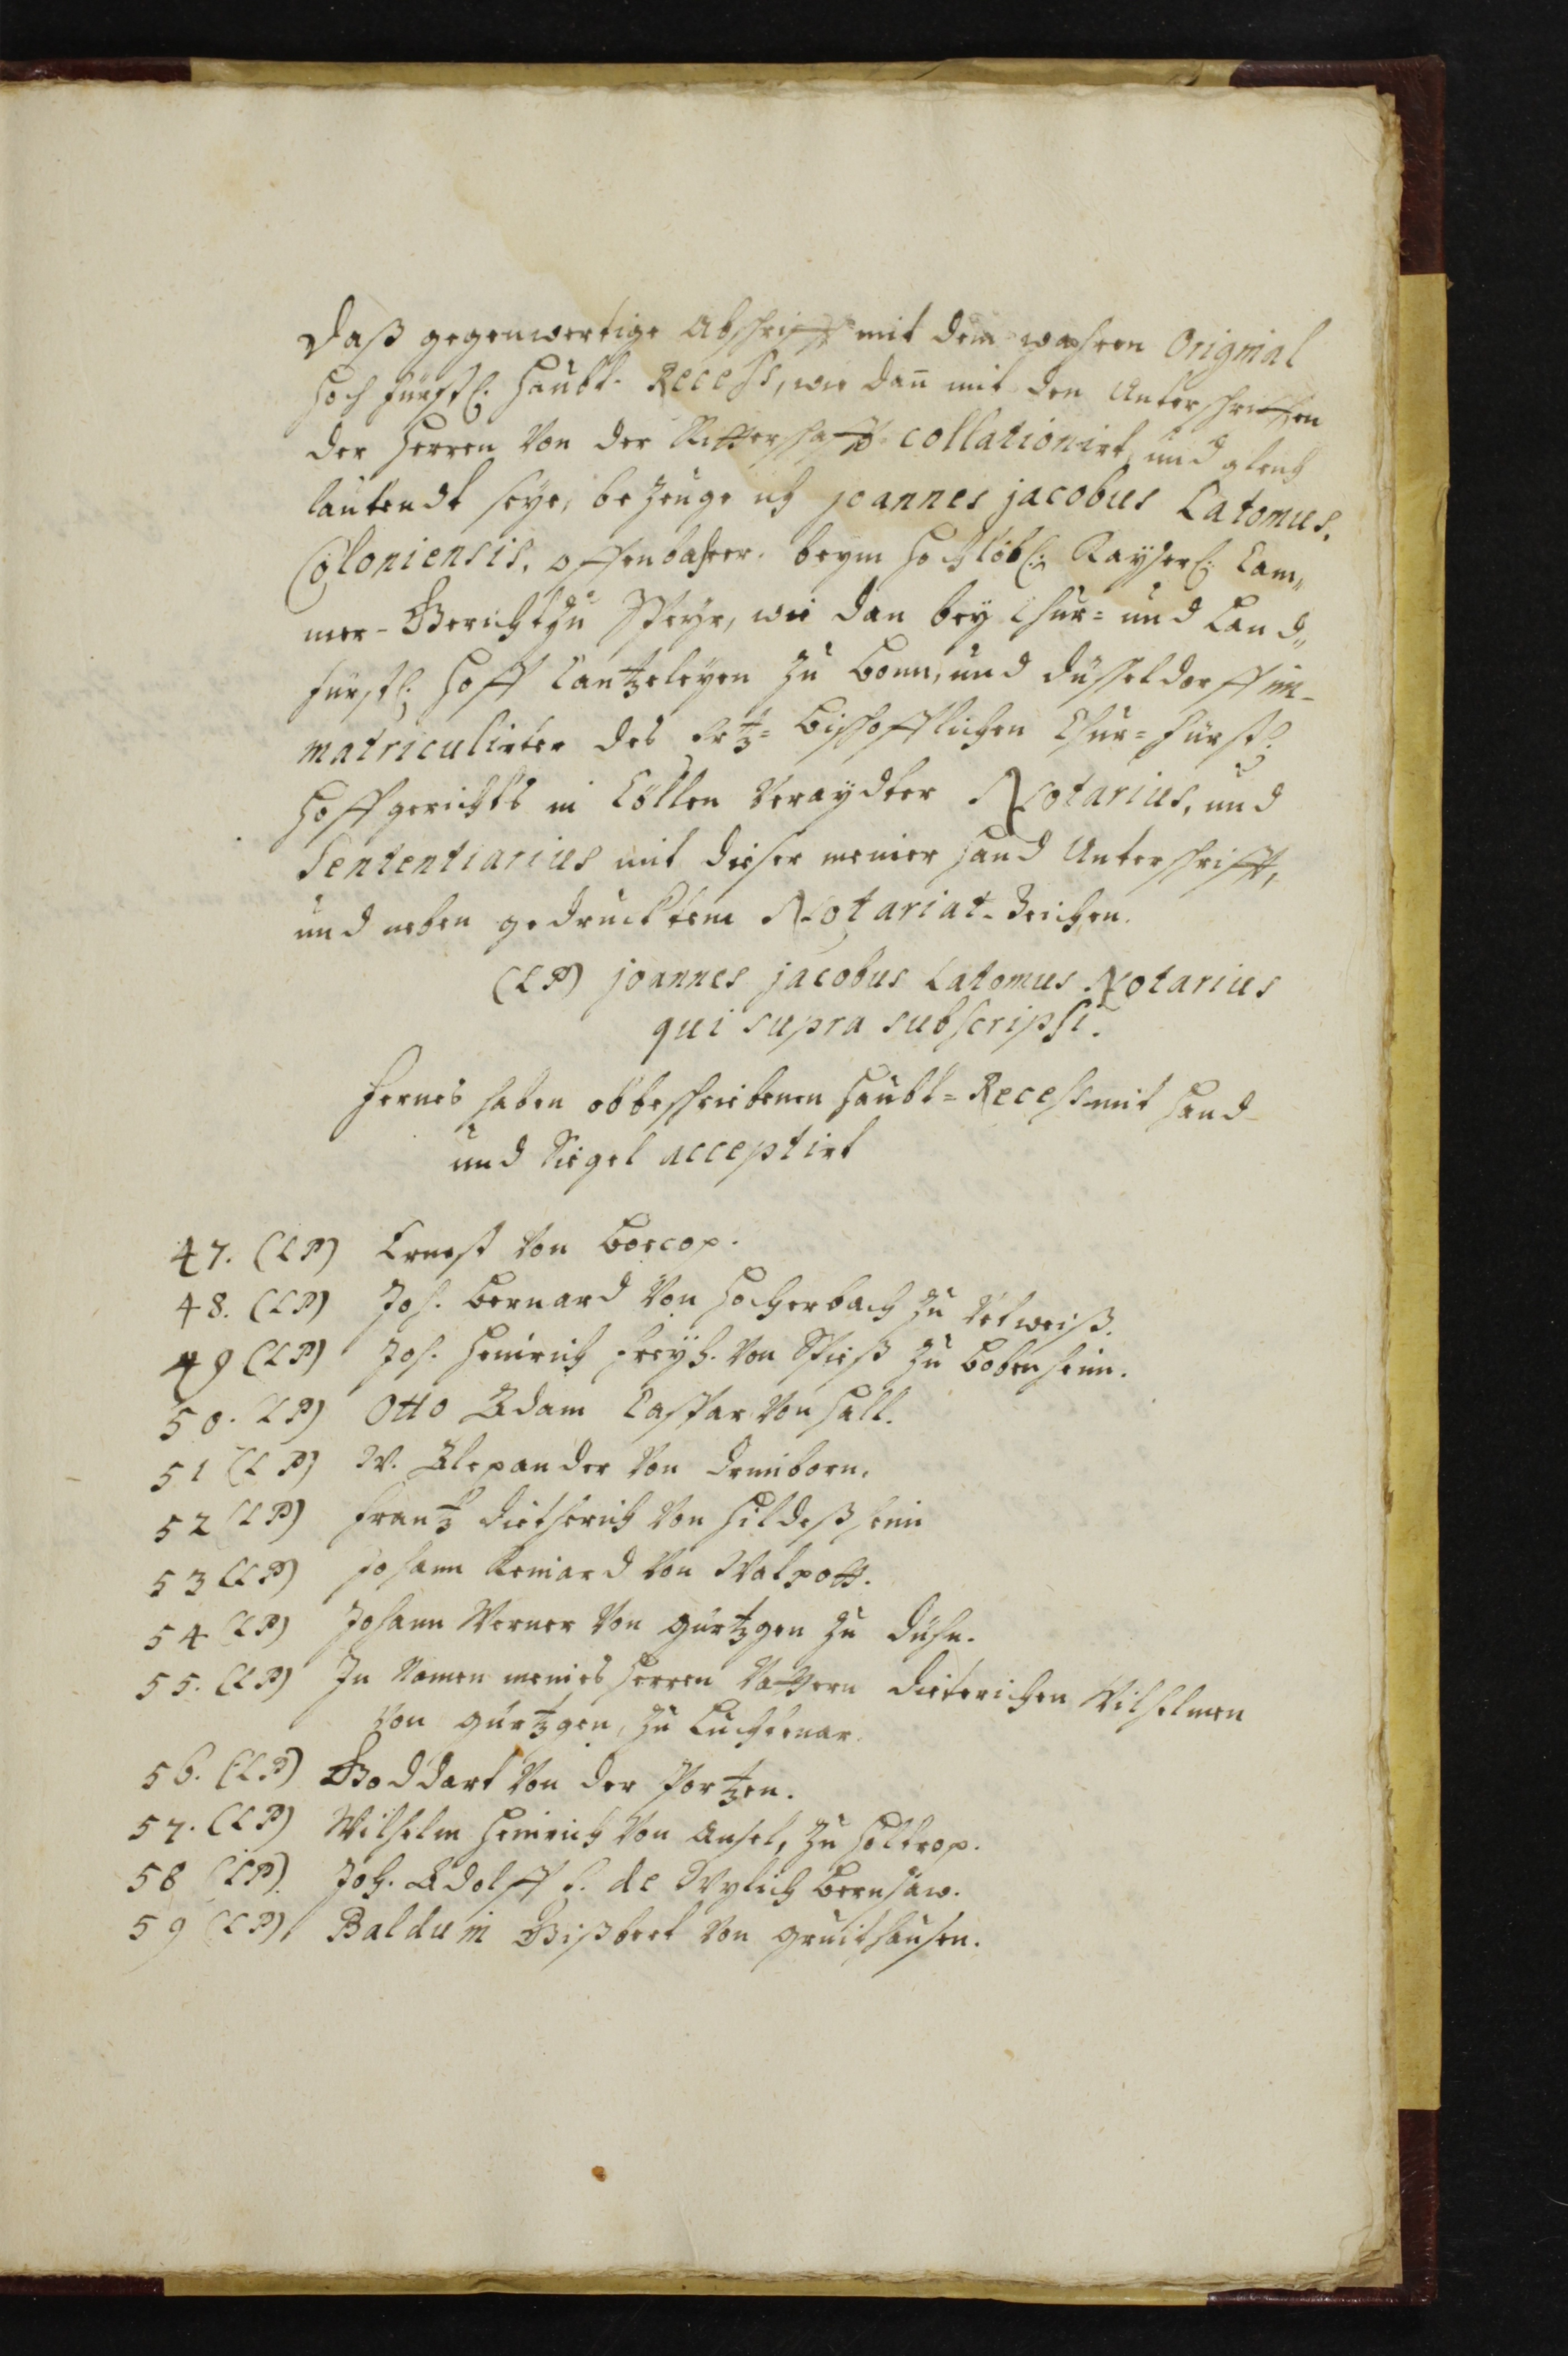 Daß gegenwertige Abschrifft mit dem wahren Original
Hoch Fürstl. Haubt- Recess, wie dan̄ mit den Unterschrifften
der Herren Von der Ritterschafft collationirt, und gleich
lautendt seye, bezeuge ich joannes jacobus Latomus,
Coloniensis, offenbahrer, beym Hochlöbl: Kayserl: Cam„
mer-Gericht zu Speyr, wie dan bey Chur= und Land„
Fürstl: Hoff Cantzeleyen zu Bonn, und Düsseldorff im-
matriculirter des Ertz= Bischofflichen Chur= Fürstl.
Hoffgerichts in Cöllen Veraydter Notarius, und
Sententiarius mit dieser meiner Hand Unterschrifft,
und neben gedrucktem Notariat-Zeichen.
(LS) joannes jacobus Latomus Notarius
qui supra subscripsi.
Fernes haben obbeschriebenen Haubt= Recess mit Hand
und Siegel acceptirt
47. (LS) Ernest Von Boscop.
48. (LS) Joh. Bernard Von Hocherbach zu Vetweiß.
49 (LS) Joh. Henrich Freyh. Von Spieß zu Bobenheim.
50. LS) Otto Adam Caspar Von Hall.
51 (LS) W. Alexander Von Drimborn.
52 (LS) Frantz Dietherich Von Hildeßheim
53 (LS) Johann Reinard Von Walpott.
54 (LS) Johann Werner Von Gürtzgen zu Dühn.
55. (LS) In Namen meines Herren Vattern Dieterichen Wilhelmen
Von Gürtzgen, zu Luchtenar.
56. (LS) Goddart Von der Portzen.
57. (LS) Wilhelm Heinrich Von Ansel, zu Holtrop.
58 (LS). Joh. Adolff L. de Wylich Bernsaw.
59 (LS), Balduin Gißbert Von Gruithausen.